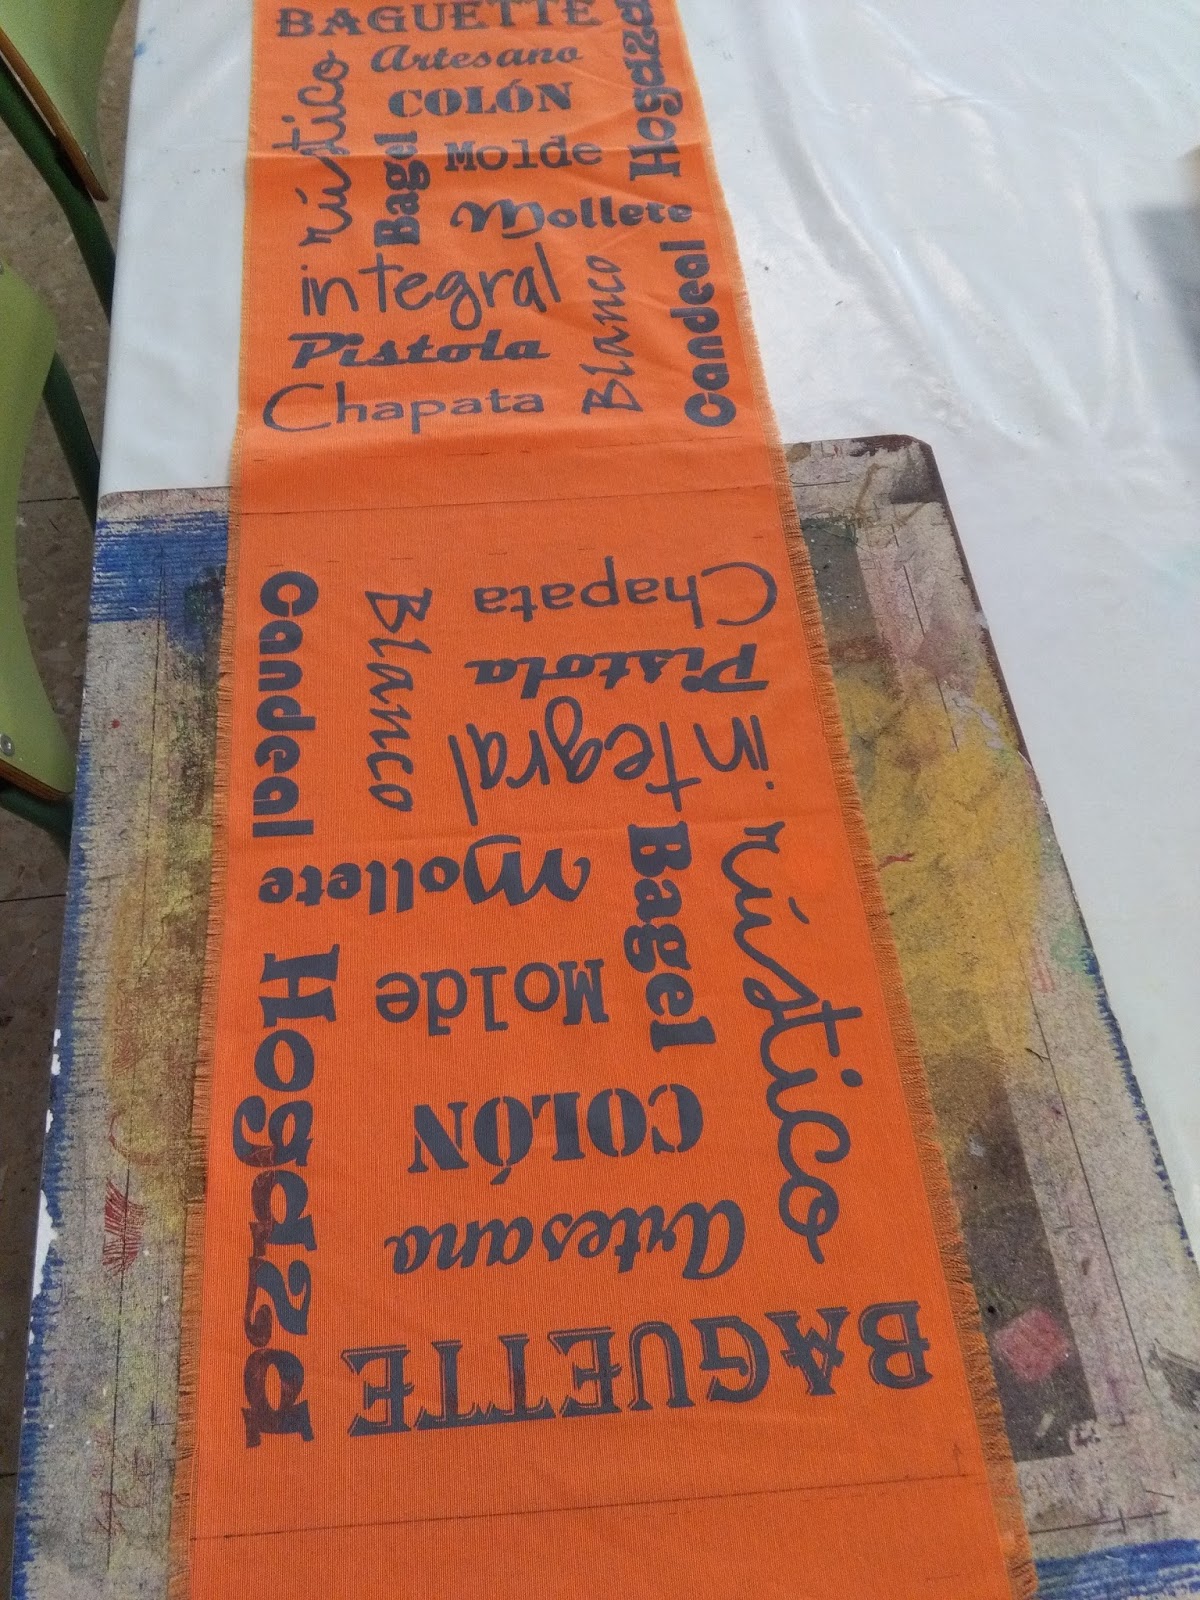 BAGUETTE
Artesano
COLÓN
rústico
Bagel
Molde
Hogaza
Mollete
integral
Blanco
Candeal
Pistola
Chapata
Chapata
Pistola
integral
Blanco
Candeal
Mollete
Bagel
rústico
Molde
Hogaza
COLÓN
Artesano
BAGUETTE